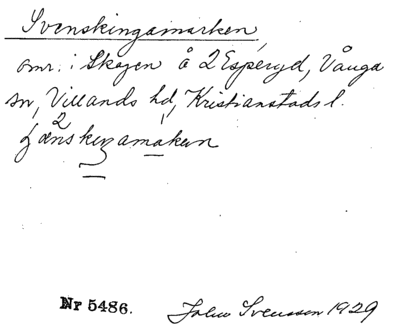 Svenskingamarken,
omr. i Skogen å 2 Esperyd, Vånga
sn, Villands hd, Kristianstads l.
Nr 5486. John Svensson 1929